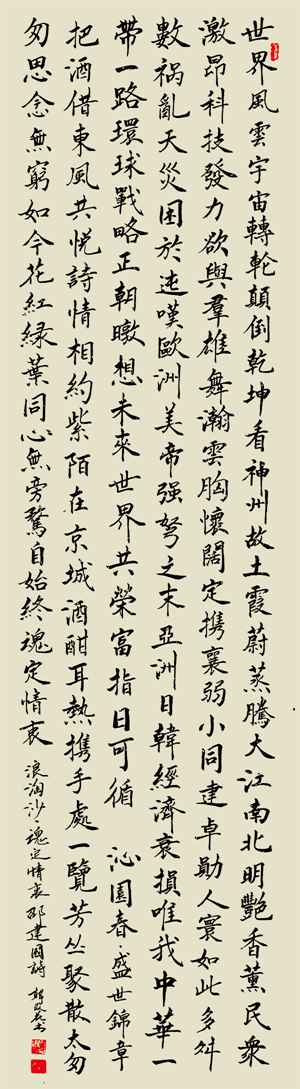 世界風雲宇宙轉輪顛倒乾坤看神州故土霞蔚蒸騰大江南北明艷香薰民衆
激昂科技發力欲與羣雄舞瀚雲胸懷闊定携襄弱小同建卓勛人寰如此多舛
數禍亂天災困於迍嘆歐洲美帝强弩之末亞洲日韓經濟衰損唯我中華一
帶一路環球戰略正朝暾想未來世界共榮富指日可循 沁園春·盛世錦章
把酒借東風共悦詩情相約紫陌在京城酒酣耳熱携手處一覽芳丛聚散太匆
匆思念無窮如今花紅緑葉同心無旁騖自始終魂定情衷 浪淘沙·魂定情衷 邵建國詩